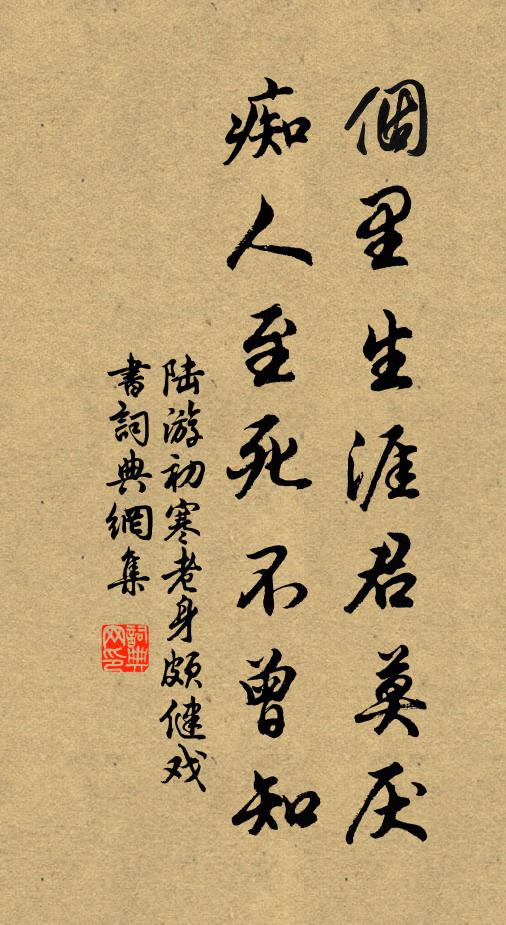 個里生涯君莫厌
痴人至死不曾知
陆游初寒老身颇健戏
書詞典網集
詞典
网印